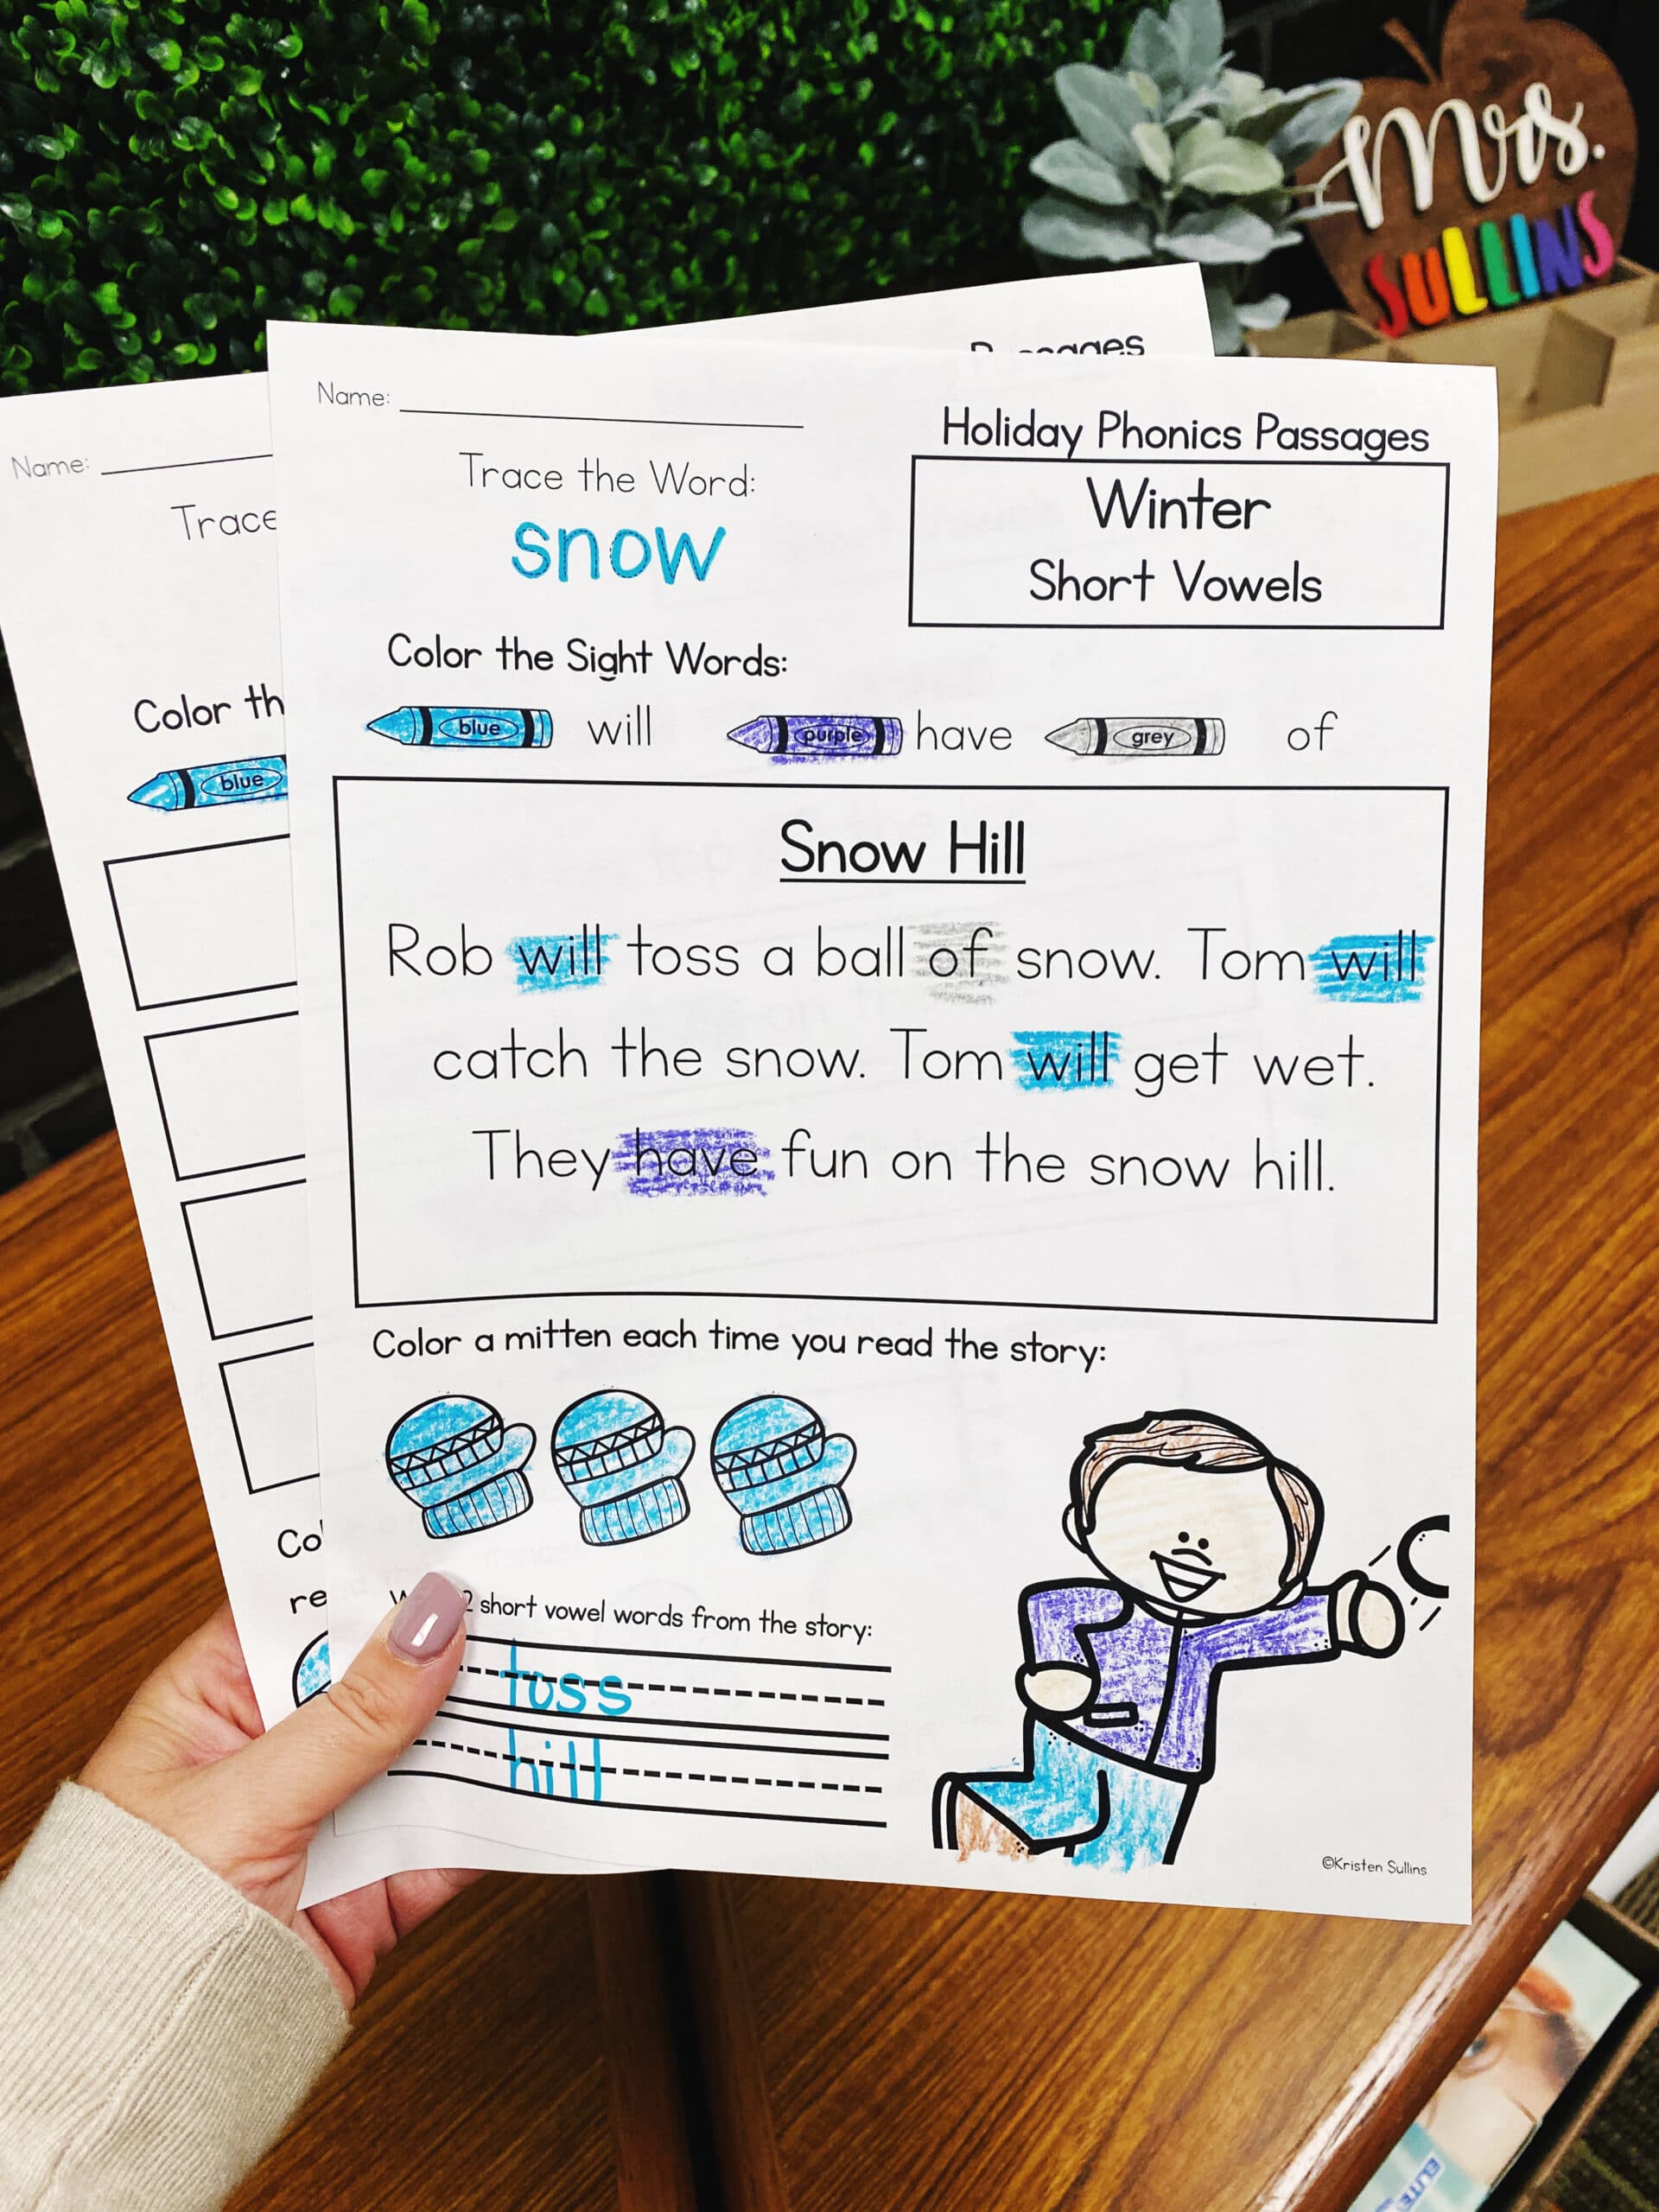 Mrs.
SULLINS
Passages
Name:
Holiday Phonics Passages
Trace the Word:
snow
Winter
Short Vowels
Color the Sight Words:
blue will purple have grey of
Snow Hill
Rob will toss a ball of snow. Tom will
catch the snow. Tom will get wet.
They have fun on the snow hill.
Color a mitten each time you read the story:
2 short vowel words from the story:
toss
hill
©Kristen Sullins
Name:
Trace
Color th
blue
Co
re